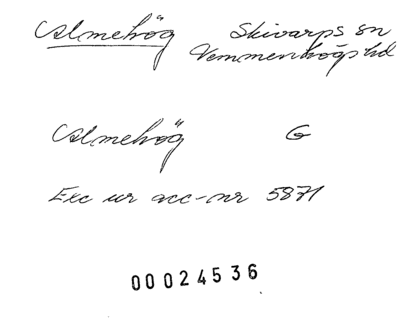 Almehög Skivarps sn
Vemmenhögs hd
Almehög G
Exc ur acc-nr 5871
00024536